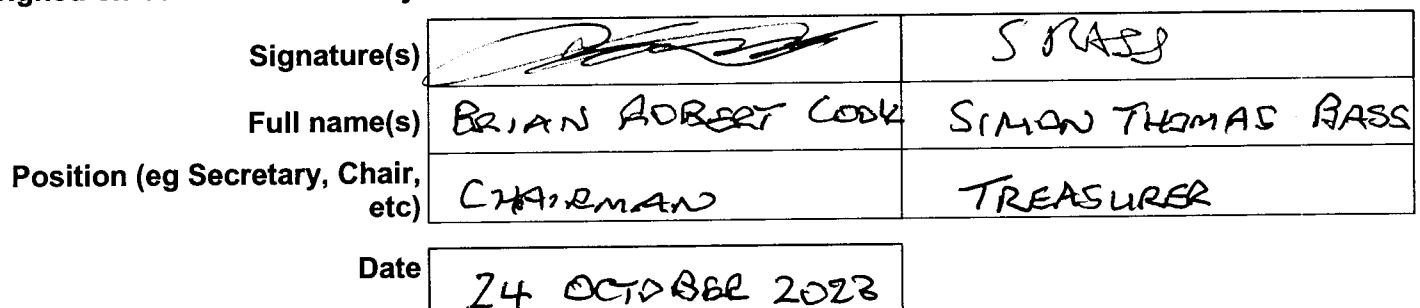 Signature(s) S BASS
Full name(s) BRIAN ROBERT COOK SIMON THOMAS BASS
Position (eg Secretary, Chair,
etc) CHAIRMAN TREASURER
Date 24 OCTOBER 2023